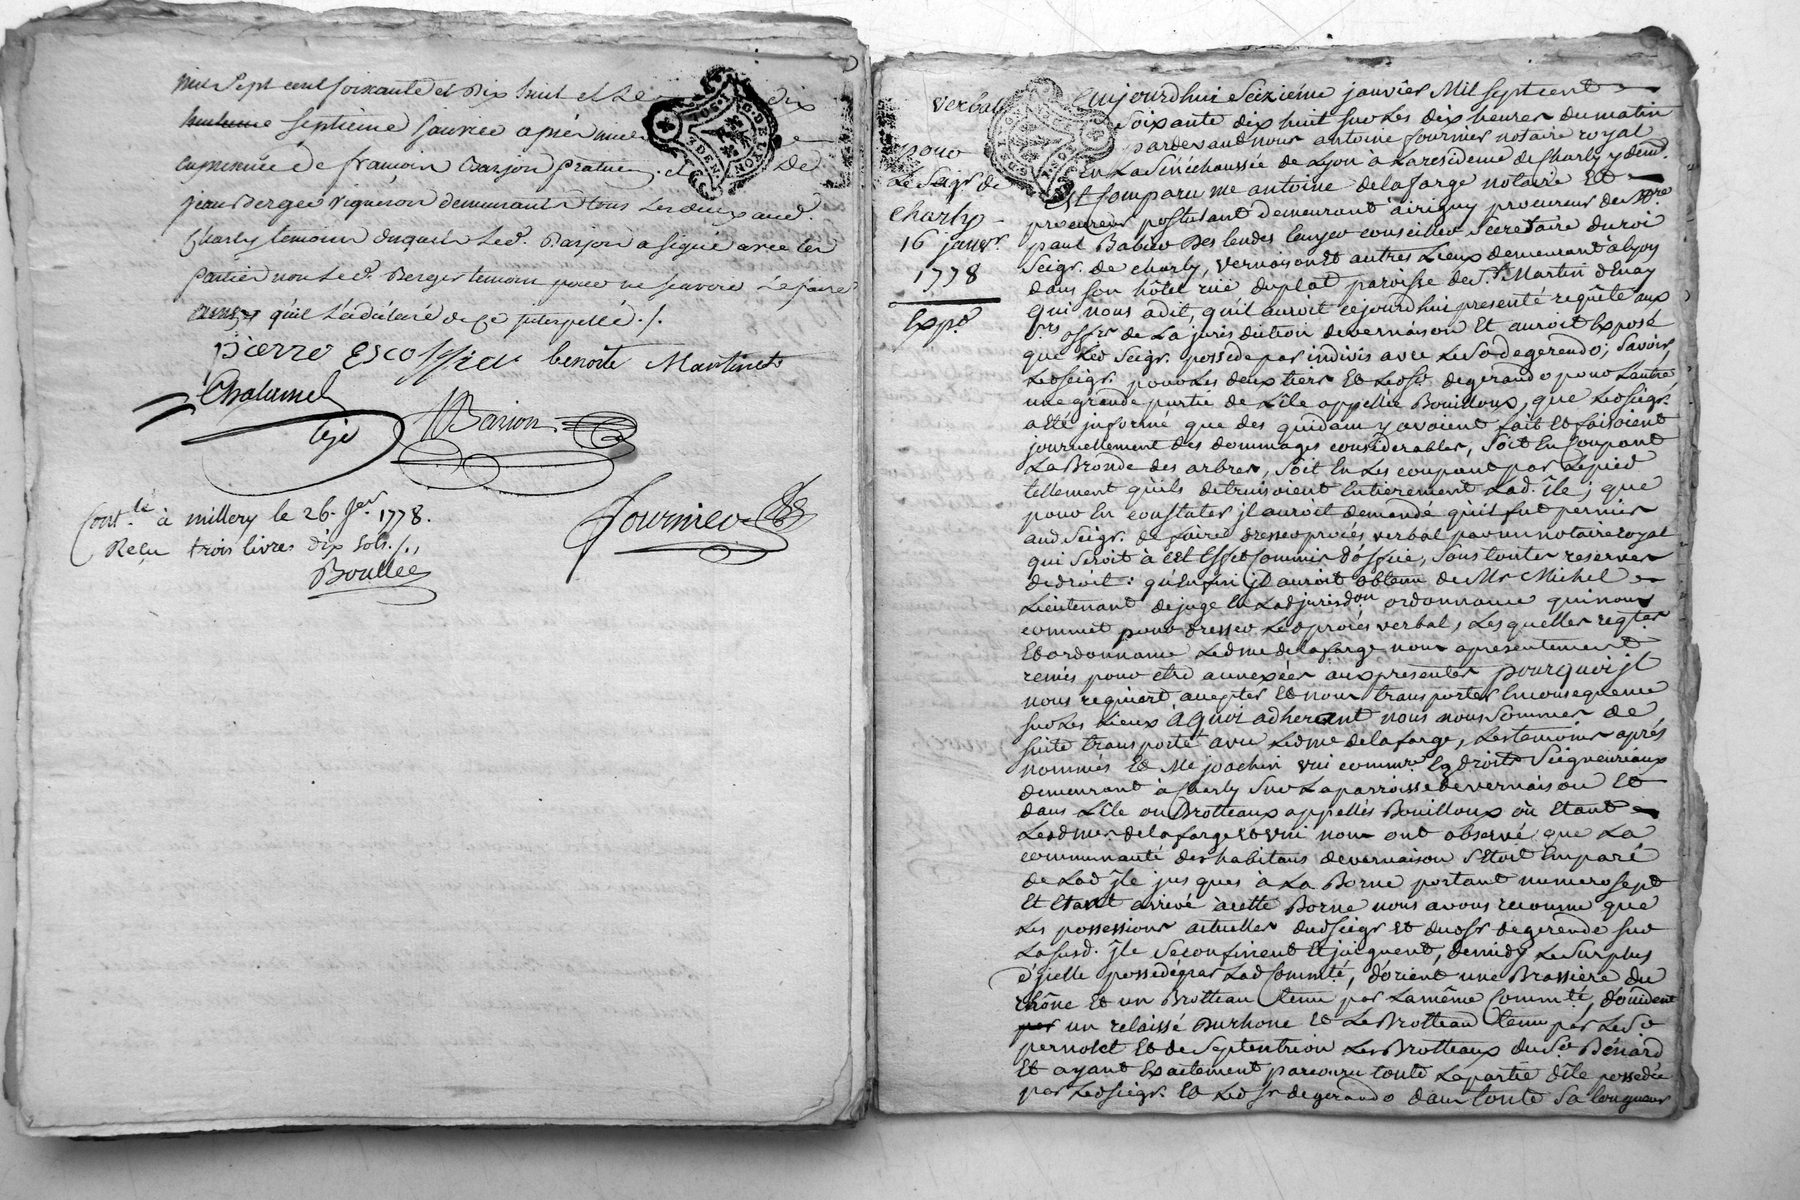 mil Sept cent soixante et dix huit et le dix
septième Janvier après midi
de françois Barjon et de
jean Berger vigneron demeurants tous les deux aud.
Charly temoins duquels led. Barjon a signé avec les
parties non led. Berger temoin pour ne scavoir le faire
ainsy qu'il l'a déclaré de ce interpellé ./.
pierre escoffier benoite Martinet
Chalumel
Barion
Fournier
Cont.lé à millery le 26. Jer. 1778.
Reçu trois livres dix sols ./.
Boullée
verbal
pour
Le Seigr. de
Charly
16 janvr.
1778
Expé.
Aujourdhui Seizieme janvier Mil Sept cent
Soixante dix huit sur les dix heures du matin
pardevant nous antoine fournier notaire royal
En La Sénéchaussée de Lyon a La residence de Charly y demt.
Est Comparu me antoine delafarge notaire Et
procureur postulant demeurant a irigny procureur de Mre.
paul Babeur Des lendes Ecuyer conseiller Secretaire du roi
Seigr. de Charly, Vernaison Et autres Lieux demeurant à Lyon
dans son hôtel rüe duplat paroisse de St. Martin d'Enay
qui nous a dit, qu'il auroit cejourdhui presenté reqûete aux
srs. offrs. de La jurisdiction de vernaison Et auroit Exposé
que Led. Seigr. possede par indivis avec Le Sr. degerando; Savoir,
Led. Seigr. pour Les deux tiers Et Led. Sr. degerando pour L'autre
une grande partie de L'île appellée Bouilloux, que Led. Seigr.
a eté informé que des quidam y avoient fait Et faisoient
journellement des dommages considerables, Soit En Coupant
La Bronde des arbres, Soit En Les coupant par Le pied
tellement qu'ils detruisoient Entierement Lad. île; que
pour En constater il auroit demandé qu'il fut permis
aud. Seigr. de faire dresser procès verbal par un notaire royal
qui Seroit à Cet Effet Commis d'office, Sous toutes reserves
de droit: qu'Enfin jl auroit obtenu de Mr. Michel
Lieutenant de juge En Lad. jurisdon. ordonnance qui nous
commet pour dresser Led. procès verbal, Lesquelles reqtes.
Et ordonnance Led. me delafarge nous a presentement
remis pour etre annexées aux presentes pourquoi jl
nous requiert accepter Et nous transporter En consequence
sur Les Lieux à quoi adherant nous nous Sommes de
suite transporté avec Led. me delafarge, Les temoins après
nommés Et Me joachin vui commre. Eg droits Seigneuriaux
demeurant à Charly Sur La parroisse de vernaison Et
dans L'île ou Brotteaux appellés Bouilloux où Etant
Lesd. mes. delafarge Et vui nous ont observé que La
communauté des habitans de vernaison s'Etoit Emparé
de Lad. île jusques à La Borne portant numero sept
Et Etant arrivé à cette Borne nous avons reconnu que
Les possessions actuelles dud. Seigr. Et dud. Sr. degerando sur
La Susd. île Se confinent Et joignent, de midy Le Surplus
d'jcelle possedé par Lad. Commté., d'orient une Brassière du
rhône Et un Brotteau tenu par La même Commté., d'occident
un relaissé Du rhone Et Le Brotteau tenu par Le Sr.
pernolet Et de Septentrion Les Brotteaux du Sr. Bénard
Et ayant Exactement parcouru toute La partie d'île possedée
par Led. Seigr. Et Led. Sr. degerando dans toute Sa longueur